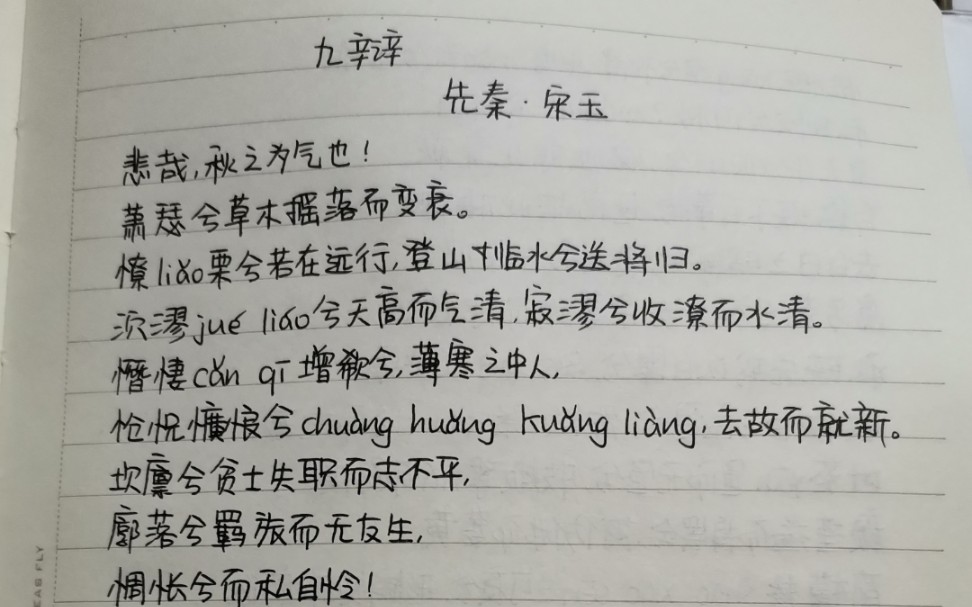 九辩
先秦·宋玉
悲哉,秋之为气也!
萧瑟兮草木摇落而变衰。
憭liǎo栗兮若在远行,登山临水兮送将归。
泬漻jué liáo兮天高而气清,寂漻兮收潦而水清。
憯悽cǎn qī增欷兮,薄寒之中人,
怆怳懭悢兮chuàng huǎng kuǎng liàng,去故而就新。
坎廪兮贫士失职而志不平,
廓落兮羁旅而无友生,
惆怅兮而私自怜!
EAS FLY